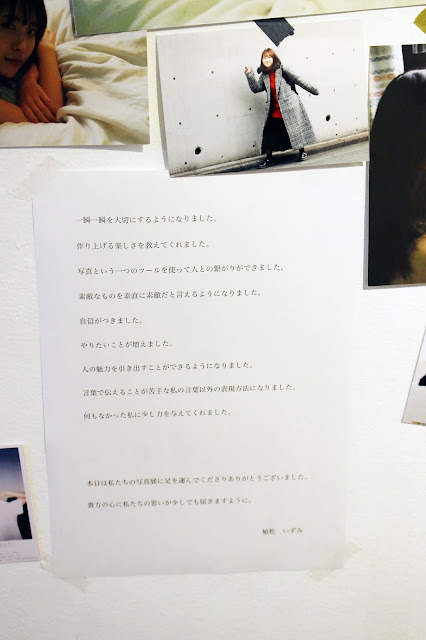 一瞬一瞬を大切にするようになりました。
作り上げる楽しさを教えてくれました。
写真という一つのツールを使って人との繋がりができました。
素敵なものを素直に素敵だと言えるようになりました。
自信がつきました。
やりたいことが増えました。
人の魅力を引き出すことができるようになりました。
言葉で伝えることが苦手な私の言葉以外の表現方法になりました。
何もなかった私に少し力を与えてくれました。
本日は私たちの写真展に足を運んでくださりありがとうございました。
貴方の心に私たちの思いが少しでも届きますように。
いずみ